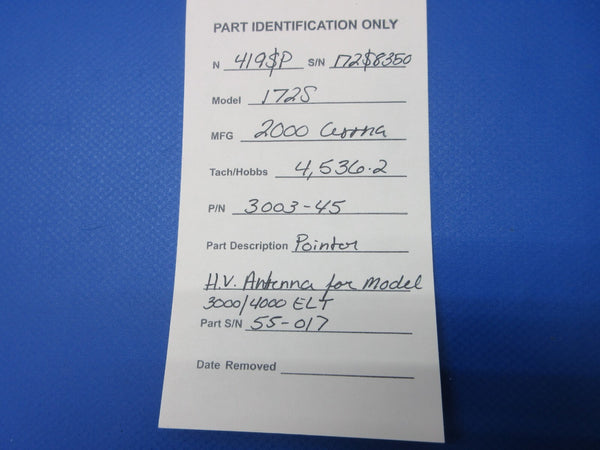 PART IDENTIFICATION ONLY
N 419SP S/N 172S8350
Model 172S
MFG 2000 Cessna
Tach/Hobbs 4,536.2
P/N 3003-45
Part Description Pointer
H.V. Antenna for Model
3000/4000 ELT
Part S/N 55-017
Date Removed